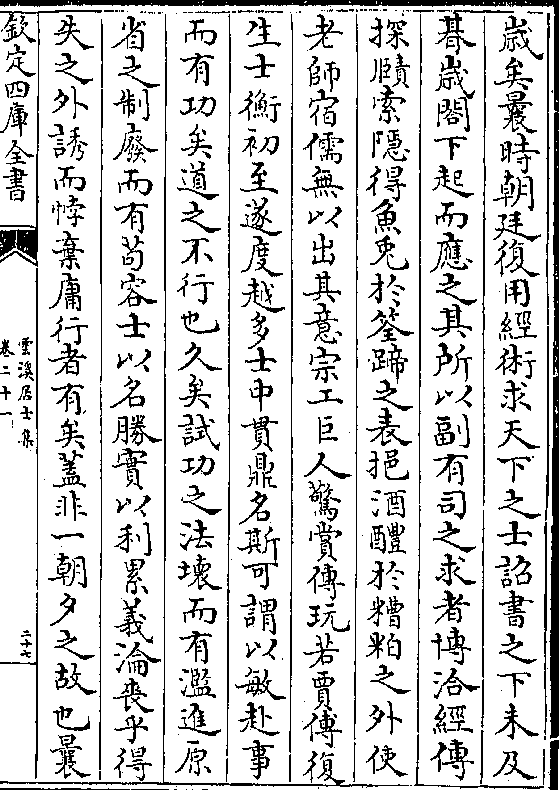 歲矣曩時朝廷復用經術求天下之士詔書之下未及
朞歲閣下起而應之其所以副有司之求者博洽經傳
探賾索隱得魚兎於筌蹄之表挹酒醴於糟粕之外使
老師宿儒無以出其意宗工巨人驚賞傳玩若賈傅復
生士衡初至遂度越多士申貫鼎名斯可謂以敏赴事
而有功矣道之不行也久矣試功之法壊而有濫進原
省之制廢而有茍容士以名勝實以利累義淪喪乎得
失之外誘而悖棄庸行者有矣蓋非一朝夕之故也曩
欽定四庫全書
雲溪居士集
卷二十一
二十七